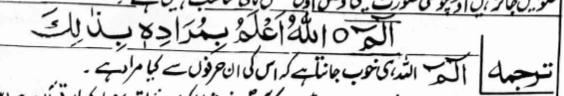 الٓمّٓ ۝ اَللّٰهُ اَعْلَمُ بِمُرَادِهٖ بِذٰلِكَ
ترجمہ
الٓمّٓ اللہ ہی خوب جانتا ہے کہ اس کی ان حرفوں سے کیا مراد ہے ۔